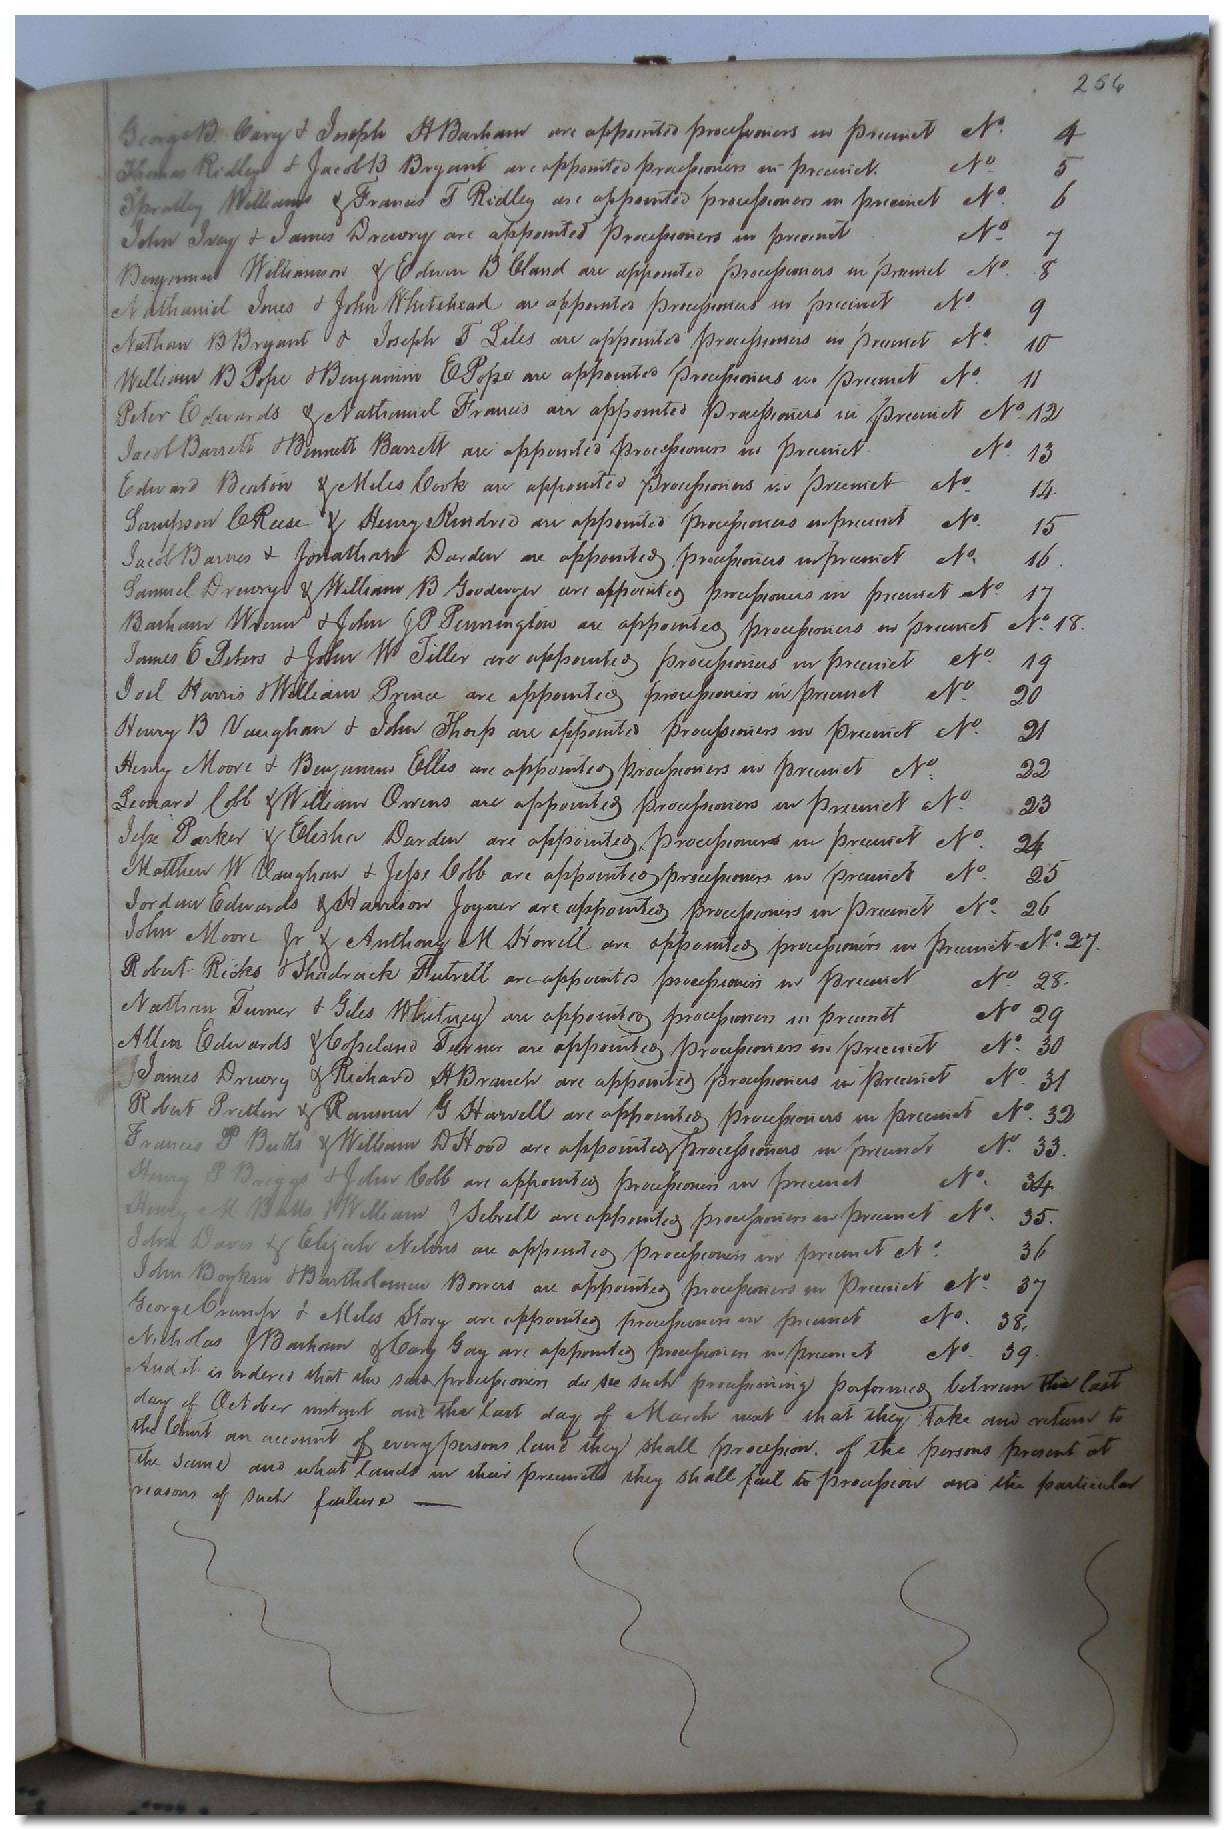 256
George B. Cary & Joseph H Barham are appointed processioners in precinct No. 4
Thomas Ridley & Jacob B Bryant are appointed processioners in precinct. No 5
Spratley Williams & Francis T Ridley are appointed processioners in precinct No. 6
John Ivey & James Drewry are appointed Processioners in precinct No. 7
Benjamin Williamson & Edwin B Claud are appointed processioners in precinct No. 8
Nathaniel Jones & John Whitehead are appointed processioners in precinct No. 9
Nathan B Bryant & Joseph T Liles are appointed processioners in precinct No. 10
William B Pope & Benjamin E Pope are appointed processioners in precinct No. 11
Peter Edwards & Nathaniel Francis are appointed Processioners in precinct No. 12
Jacob Barrett & Bennett Barrett are appointed processioners in Precinct No. 13
Edward Beaton & Miles Cook are appointed processioners in precinct No. 14.
Sampson C Reese & Henry Kindred are appointed processioners in precinct No. 15
Jacob Barnes & Jonathan Darden are appointed processioners in precinct No. 16.
Samuel Drewry & William B Goodwyn are appointed processioners in precinct No. 17
Barham Wrenn & John J P Pennington are appointed processioners in precinct No. 18.
James E Peters & John W Tiller are appointed processioners in precinct No. 19
Joel Harris & William Prince are appointed processioners in precinct No 20
Henry B Vaughan & John Thorp are appointed processioners in Precinct No. 21
Henry Moore & Benjamin Ellis are appointed processioners in precinct No. 22
Leonard Cobb & William Owens are appointed processioners in precinct No 23
Jesse Parker & Elisha Darden are appointed processioners in Precinct No. 24
Matthew W Vaughan & Jesse Cobb are appointed processioners in precinct No. 25
Jordan Edwards & Harrison Joyner are appointed processioners in Precinct No. 26
John Moore Jr & Anthony M Howell are appointed processioners in precinct No. 27.
Robert Ricks & Shadrack Futrell are appointed processioners in precinct No. 28.
Nathan Turner & Giles Whitney are appointed processioners in precinct No 29
Allen Edwards & Copeland Turner are appointed Processioners in Precinct No. 30
James Drewry & Richard H Branch are appointed processioners in Precinct No. 31
Robert Pretlow & Ransom G Harvell are appointed Processioners in precinct No. 32
Francis P Butts & William D Hood are appointed processioners in precinct No. 33.
Henry P Briggs & John Cobb are appointed processioners in precinct No. 34
Henry M Butts & William J Sebrell are appointed processioners in precinct No. 35.
John Davis & Elijah Nelms are appointed processioners in precinct No. 36
John Boykin & Bartholomew Bowers are appointed processioners in Precinct No. 37
George Crump & Miles Story are appointed processioners in precinct No. 38.
Nicholas J Barham & Cary Gay are appointed processioners in precinct No. 39.
And it is ordered that the said processioners do see such processioning performed between the last
day of October instant and the last day of March next that they take and return to
the Court an account of every persons land they shall procession. of the persons present at
the same and what lands in their precincts they shall fail to procession and the particular
reasons of such failure —